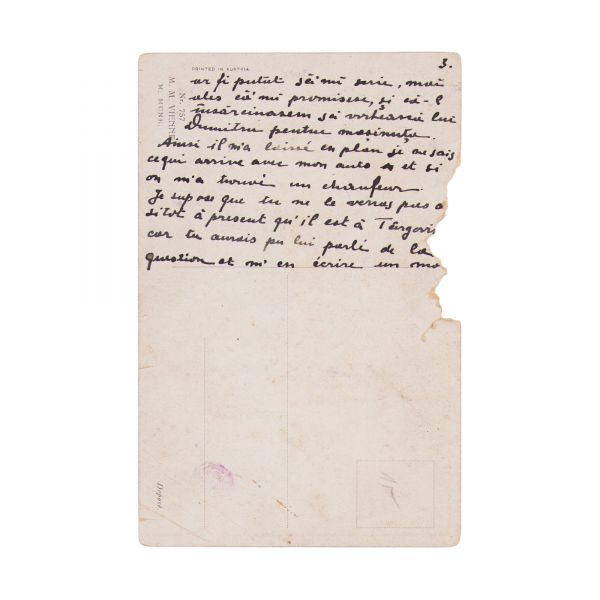 3.
PRINTED IN AUSTRIA
Nr. 757
M. M. VIENNE
M. MUNK
ar fi putut să'mi scrie, mai
ales că'mi promisese, și că-l
însărcinasem să vorbească lui
Dumitru pentru masinuta.
Ainsi il m'a laissé en plan je ne sais
ce qui arrive avec mon auto et si
on m'a trouvé un chaufeur.
Je supose que tu ne le verras pas
sitot à present qu'il est à Târgovis
car tu aurais pu lui parlé de la
question et m'en écrire un mo
Dépose.